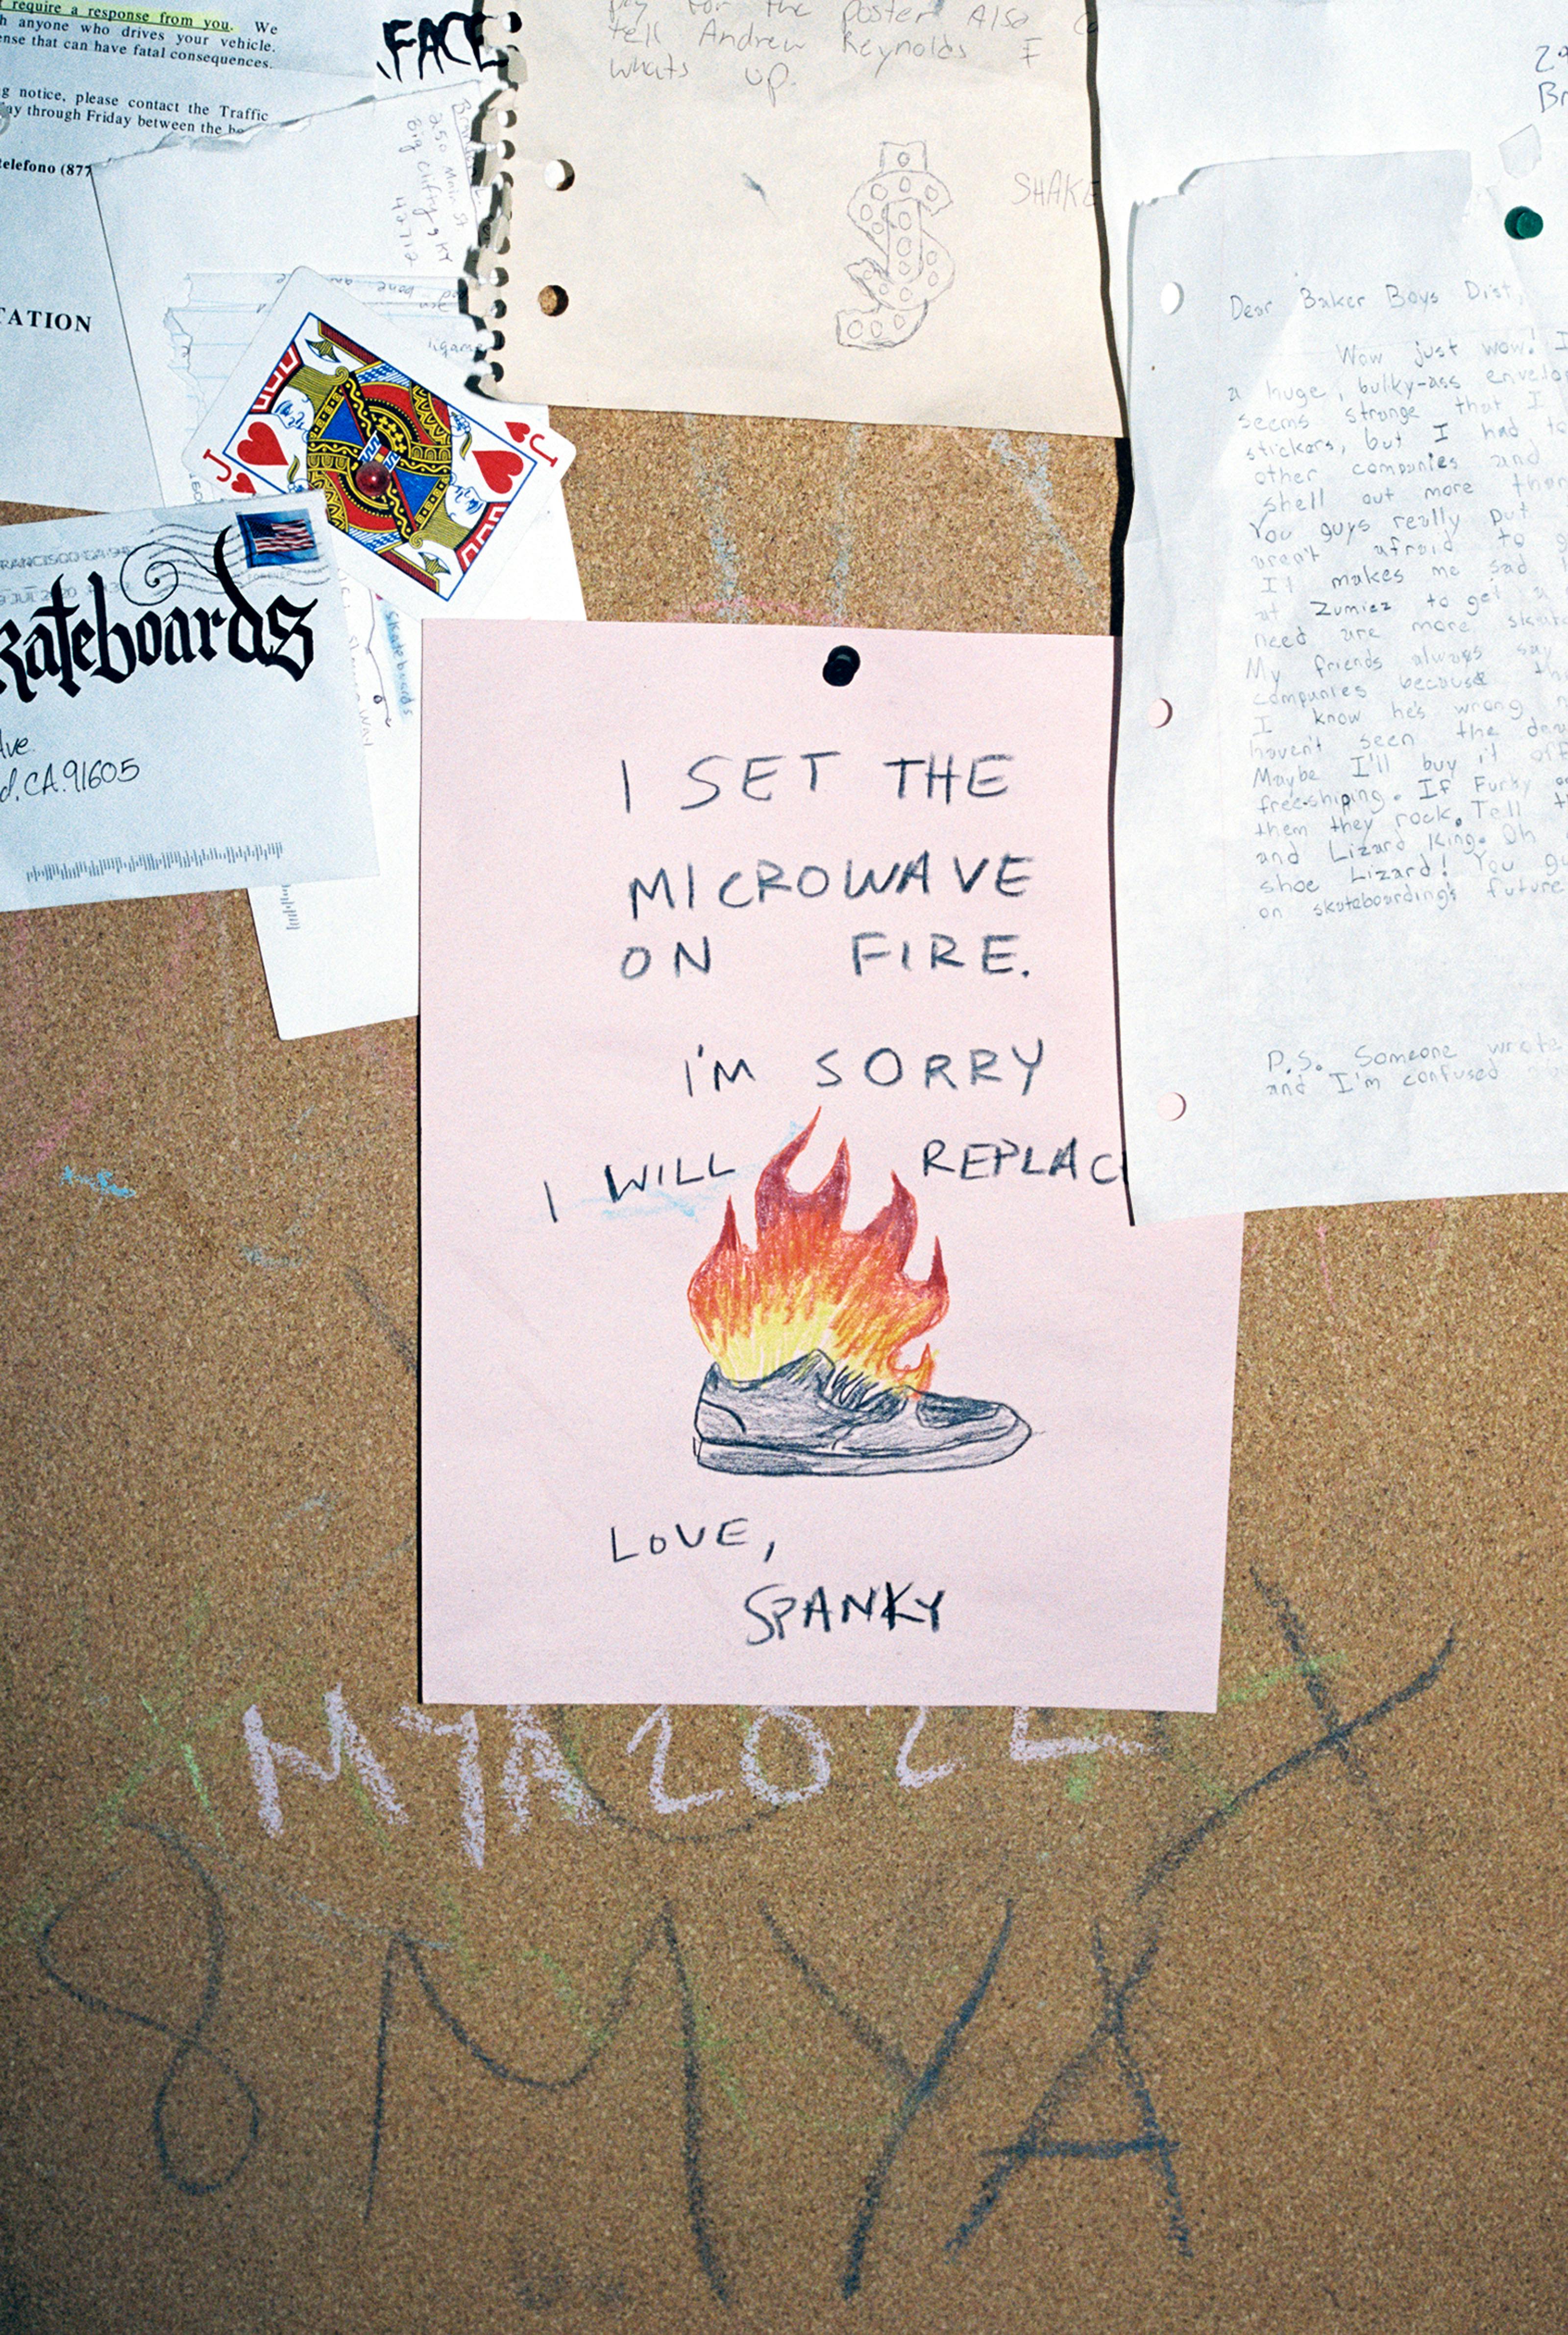 require a response from you. We
anyone who drives your vehicle.
that can have fatal consequences.
notice, please contact the Traffic
through Friday between the
telefono (877
TATION
FACE
250 Main St
Big Clifty, KY
42712
for the poster Also
tell Andrew Reynolds I
whats up.
SHAKE
J
J
FRANCISCO CA
kateboards
Ave.
CA. 91605
skateboards
Dear Baker Boys Dist,
Wow just wow! I
a huge, bulky-ass envelo
seems strange that I
stickers, but I had to
other companies and
shell out more than
You guys really put
aren't afraid to
It makes me sad
at Zumiez to get a
need are more skate
My friends always say
companies because
I know he's wrong
haven't seen the
Maybe I'll buy it off
free-shiping. If Furby
them they rock. Tell
and Lizard King. Oh
shoe Lizard! You
on skateboarding's future
P.S. Someone wrote
and I'm confused
I SET THE
MICROWAVE
ON FIRE.
I'M SORRY
I WILL REPLAC
LOVE,
SPANKY
MYA 2022
8 MYA